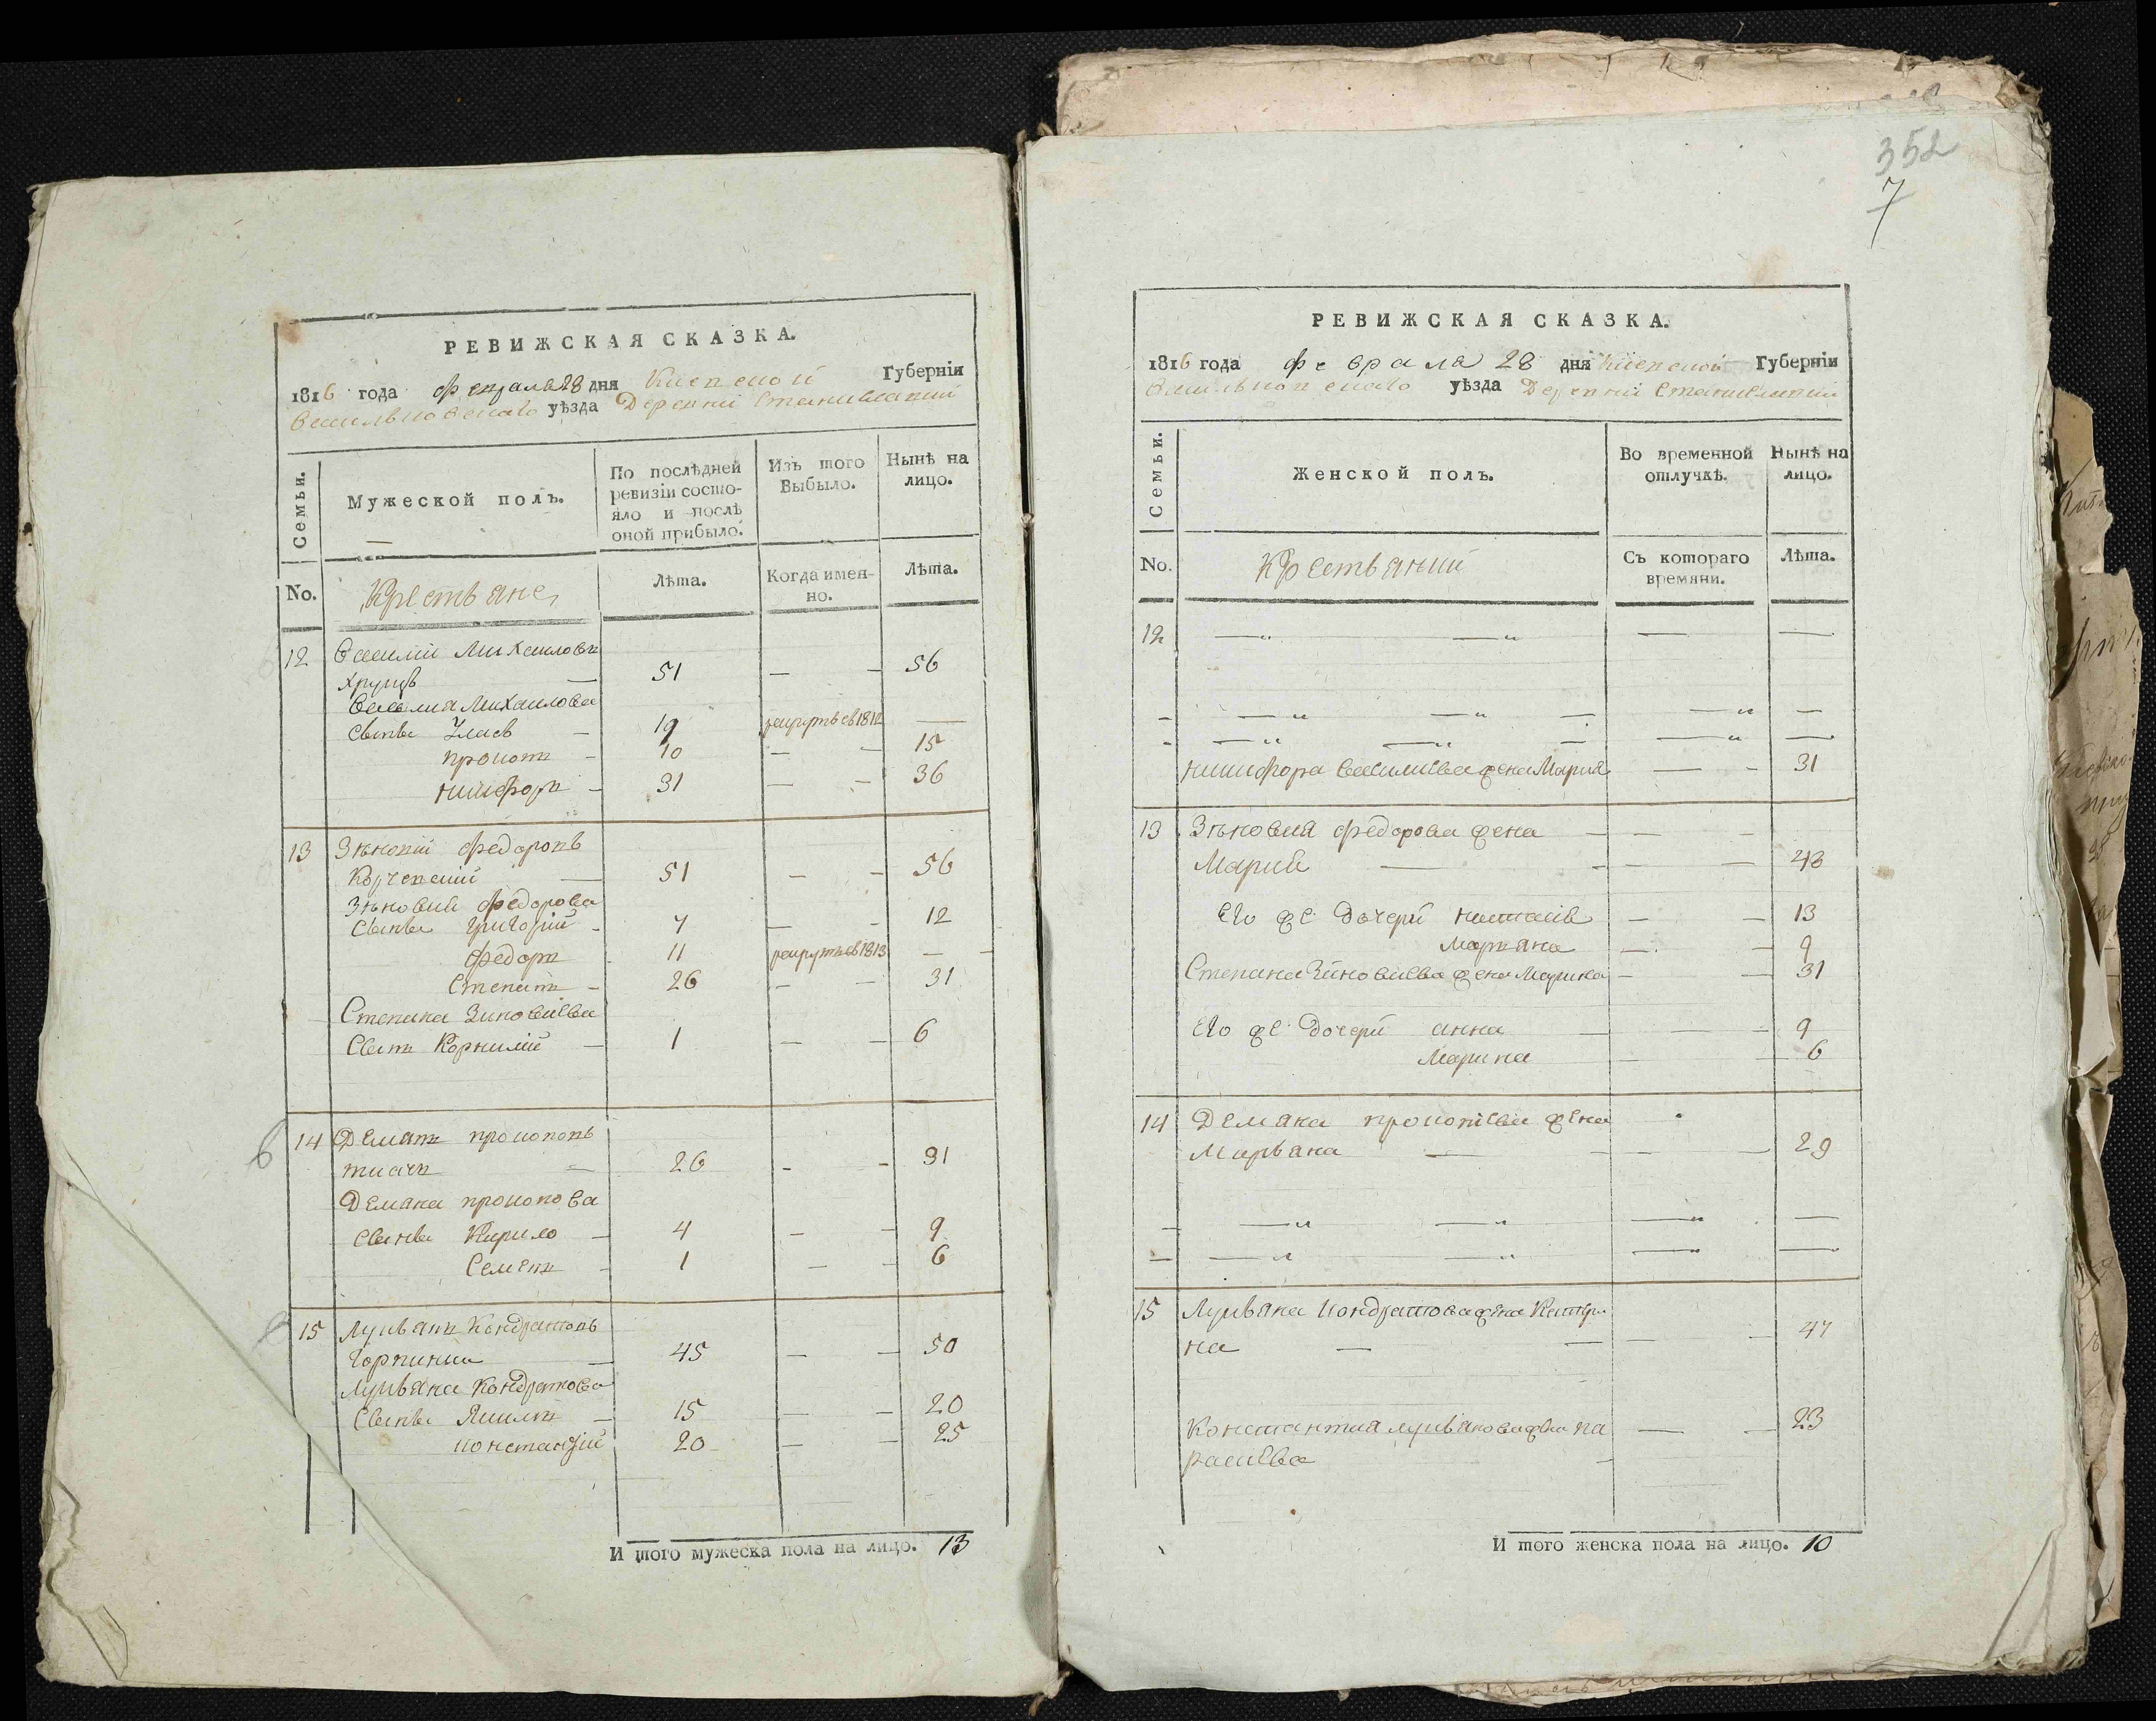 РЕВИЖСКАЯ СКАЗКА.
1816 года февраля 28 дня Киевской Губерніи
Васильковскаго уѣзда Деревни Станиславки
Семьи.
Мужеской полъ.
По послѣдней
ревизіи состо-
яло и послѣ
оной прибыло.
Изъ того
Выбыло.
Нынѣ на
лицо.
No.
Крестьяне
Лѣта.
Когда имен-
но.
Лѣта.
12 Василий Михаиловъ
51 — 56
Василия Михаилова
Сынъ Уласъ 19 рекрутъ въ 1812 —
Прокопъ 10 — 15
Никифоръ 31 — 36
13 Зѣновий Федоровъ
51 — 56
Зѣновия Федорова
Сынъ Григорий 7 — 12
Федоръ 11 рекрутъ въ 1813 —
Степанъ 26 — 31
Степана Зиновиева
Сынъ Корнилий 1 — 6
14 Демянъ Прокоповъ
Ткачъ 26 — 31
Демяна Прокопова
Сынъ Кирило 4 — 9
Семенъ 1 — 6
15 Лукьянъ Кондратовъ
45 — 50
Лукьяна Кондратова
Сынъ Якимъ 15 — 20
20 — 25
И того мужеска пола на лицо. 13
352
7
РЕВИЖСКАЯ СКАЗКА.
1816 года февраля 28 дня Киевской Губерніи
Васильковскаго уѣзда Деревни Станиславки
Семьи.
Женской полъ.
Во временной
отлучкѣ.
Нынѣ на
лицо.
No.
Съ котораго
времяни.
Лѣта.
12
Никифора Васильева жена Мария — 31
13 Зѣновия Федорова жена
Мария — 43
Его же дочери Настасия — 13
Марьяна — 9
Степана Зиновиева жена Марика — 31
Его же дочери Анна — 9
Марина — 6
14 Демяна Прокопиева жена
Марьяна — 29
15 Лукьяна Кондратова жена Катери-
на — 47
Константия Лукьянова жена Па
раскева — 23
И того женска пола на лицо. 10